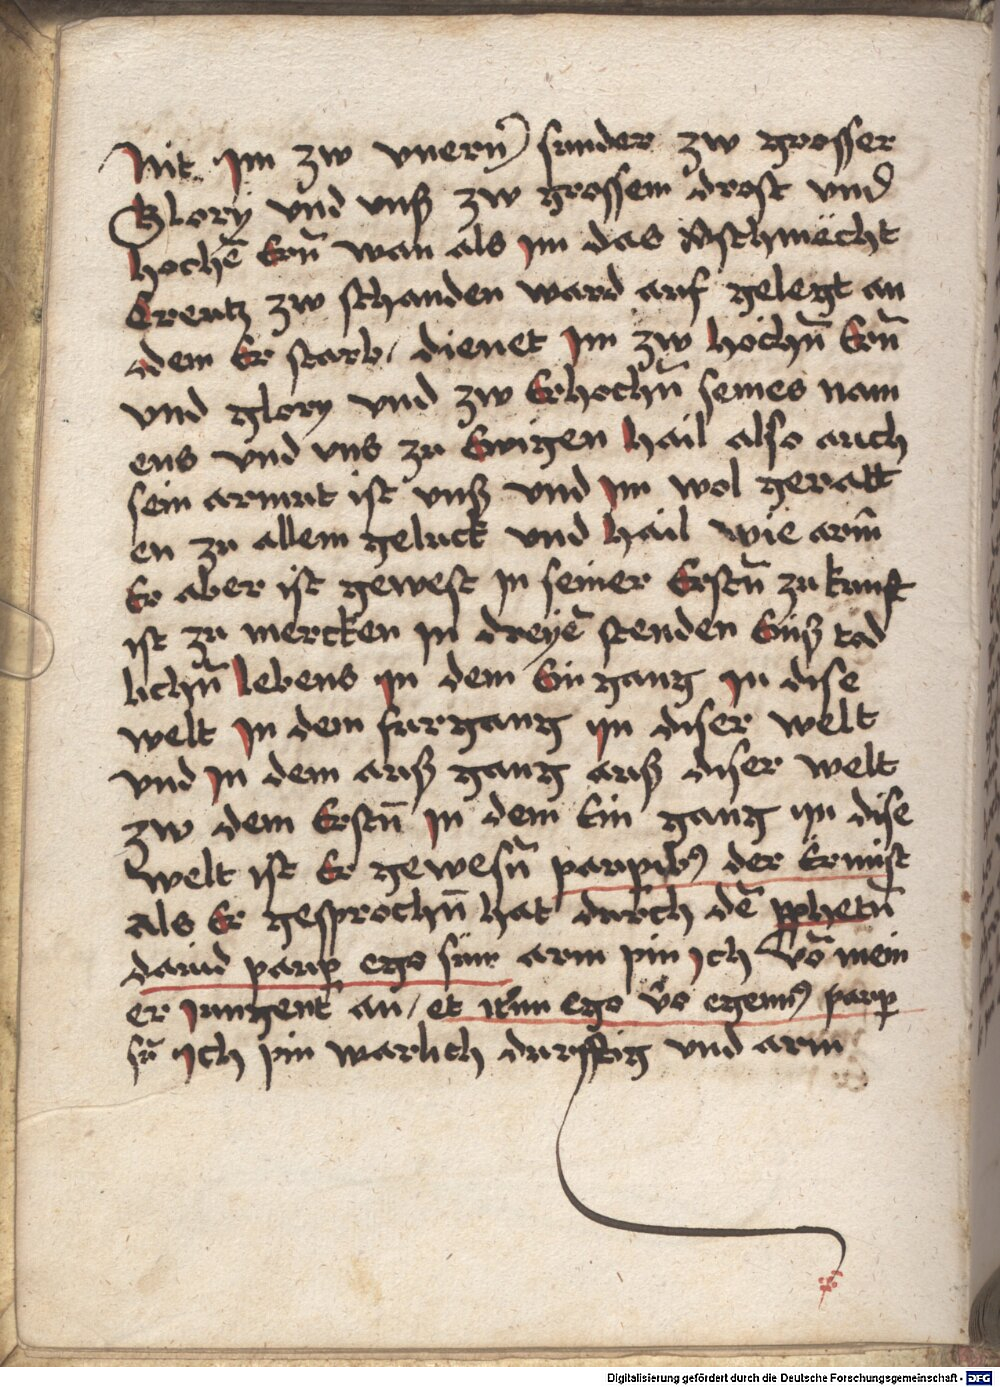 Nit Im zw unern̄ sunder zw grosser
Glory vnd vnß zw grossem drost vnd
hochē Ern̄ wan als im das schmächt
Creutz zw schanden ward auf gelegt an
dem Er starb / dienet Im zw hochn̄ Ern̄
vnd glory vnd zw Erhochn̄ seines nam
ens vnd vns zu Ewigen hail also auch
sein armut ist vnß vnd Im wol geratt
en zu allem geluck vnd hail wie arm̄
Er aber ist gewest In seiner Erstn̄ zu kunft
ist zu mercken In dreyē stenden Einß tod
lichn̄ lebens in dem Ein gang In dise
welt In dem furgang in diser welt
vnd In dem auß gang auß diser welt
zw dem Erstn̄ In dem Ein gang in dise
welt ist Er gewesn̄ der Ermist
als Er gesprochn̄ hat durch dē ꝓphetn̄
dauid paup ego sum arm pin Ich vō mein
er Jungent an / et ego vo egenus paup
sū Ich pin warlich durfftig vnd arm
Digitalisierung gefördert durch die Deutsche Forschungsgemeinschaft - DFG